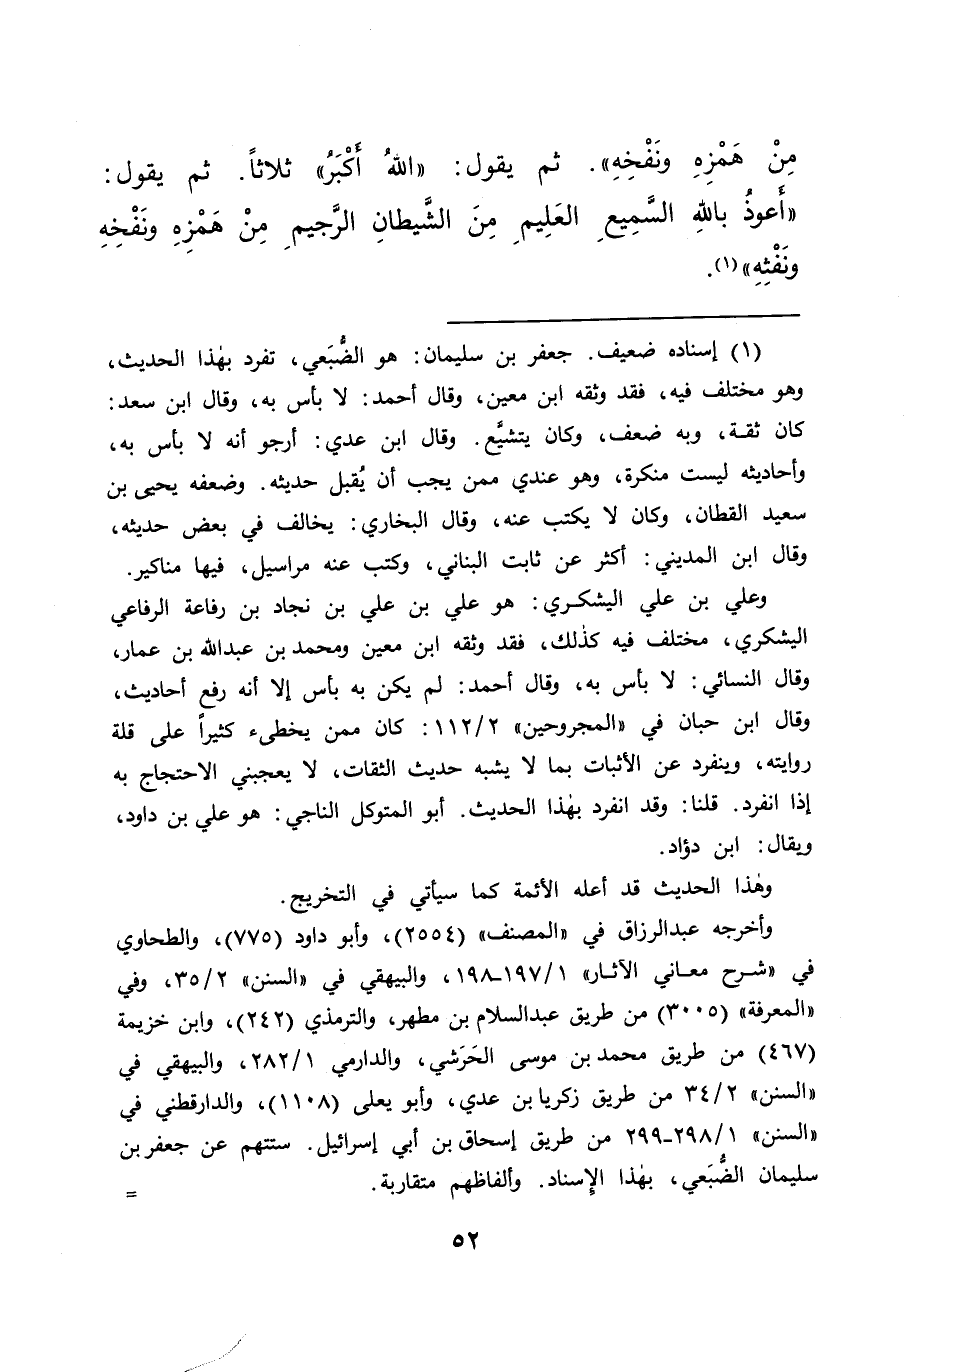 مِنْ هَمْزِهِ ونَفْخِهِ». ثم يقول: «اللهُ أَكْبَرُ» ثلاثاً. ثم يقول:
«أَعوذُ باللهِ السَّمِيعِ العَلِيمِ مِنَ الشَّيطانِ الرَّجيمِ مِنْ هَمْزِهِ ونَفْخِهِ
ونَفْثِهِ»(١).
(١) إسناده ضعيف. جعفر بن سليمان: هو الضُّبَعي، تفرد بهٰذا الحديث،
وهو مختلف فيه، فقد وثقه ابن معين، وقال أحمد: لا بأس به، وقال ابن سعد:
كان ثقة، وبه ضعف، وكان يتشيَّع. وقال ابن عدي: أرجو أنه لا بأس به،
وأحاديثه ليست منكرة، وهو عندي ممن يجب أن يُقبل حديثه. وضعفه يحيى بن
سعيد القطان، وكان لا يكتب عنه، وقال البخاري: يخالف في بعض حديثه،
وقال ابن المديني: أكثر عن ثابت البناني، وكتب عنه مراسيل، فيها مناكير.
وعلي بن علي اليشكري: هو علي بن علي بن نجاد بن رفاعة الرفاعي
اليشكري، مختلف فيه كذٰلك، فقد وثقه ابن معين ومحمد بن عبدالله بن عمار،
وقال النسائي: لا بأس به، وقال أحمد: لم يكن به بأس إلا أنه رفع أحاديث،
وقال ابن حبان في «المجروحين» ١١٢/٢: كان ممن يخطىء كثيراً على قلة
روايته، وينفرد عن الأثبات بما لا يشبه حديث الثقات، لا يعجبني الاحتجاج به
إذا انفرد. قلنا: وقد انفرد بهٰذا الحديث. أبو المتوكل الناجي: هو علي بن داود،
ويقال: ابن دؤاد.
وهٰذا الحديث قد أعله الأئمة كما سيأتي في التخريج.
وأخرجه عبدالرزاق في «المصنف» (٢٥٥٤)، وأبو داود (٧٧٥)، والطحاوي
في «شرح معاني الآثار» ١٩٧/١-١٩٨، والبيهقي في «السنن» ٣٥/٢، وفي
«المعرفة» (٣٠٠٥) من طريق عبدالسلام بن مطهر، والترمذي (٢٤٢)، وابن خزيمة
(٤٦٧) من طريق محمد بن موسى الحَرَشي، والدارمي ٢٨٢/١، والبيهقي في
«السنن» ٣٤/٢ من طريق زكريا بن عدي، وأبو يعلى (١١٠٨)، والدارقطني في
«السنن» ٢٩٨/١-٢٩٩ من طريق إسحاق بن أبي إسرائيل. ستتهم عن جعفر بن
سليمان الضُّبَعي، بهٰذا الإسناد. وألفاظهم متقاربة.
=
٥٢